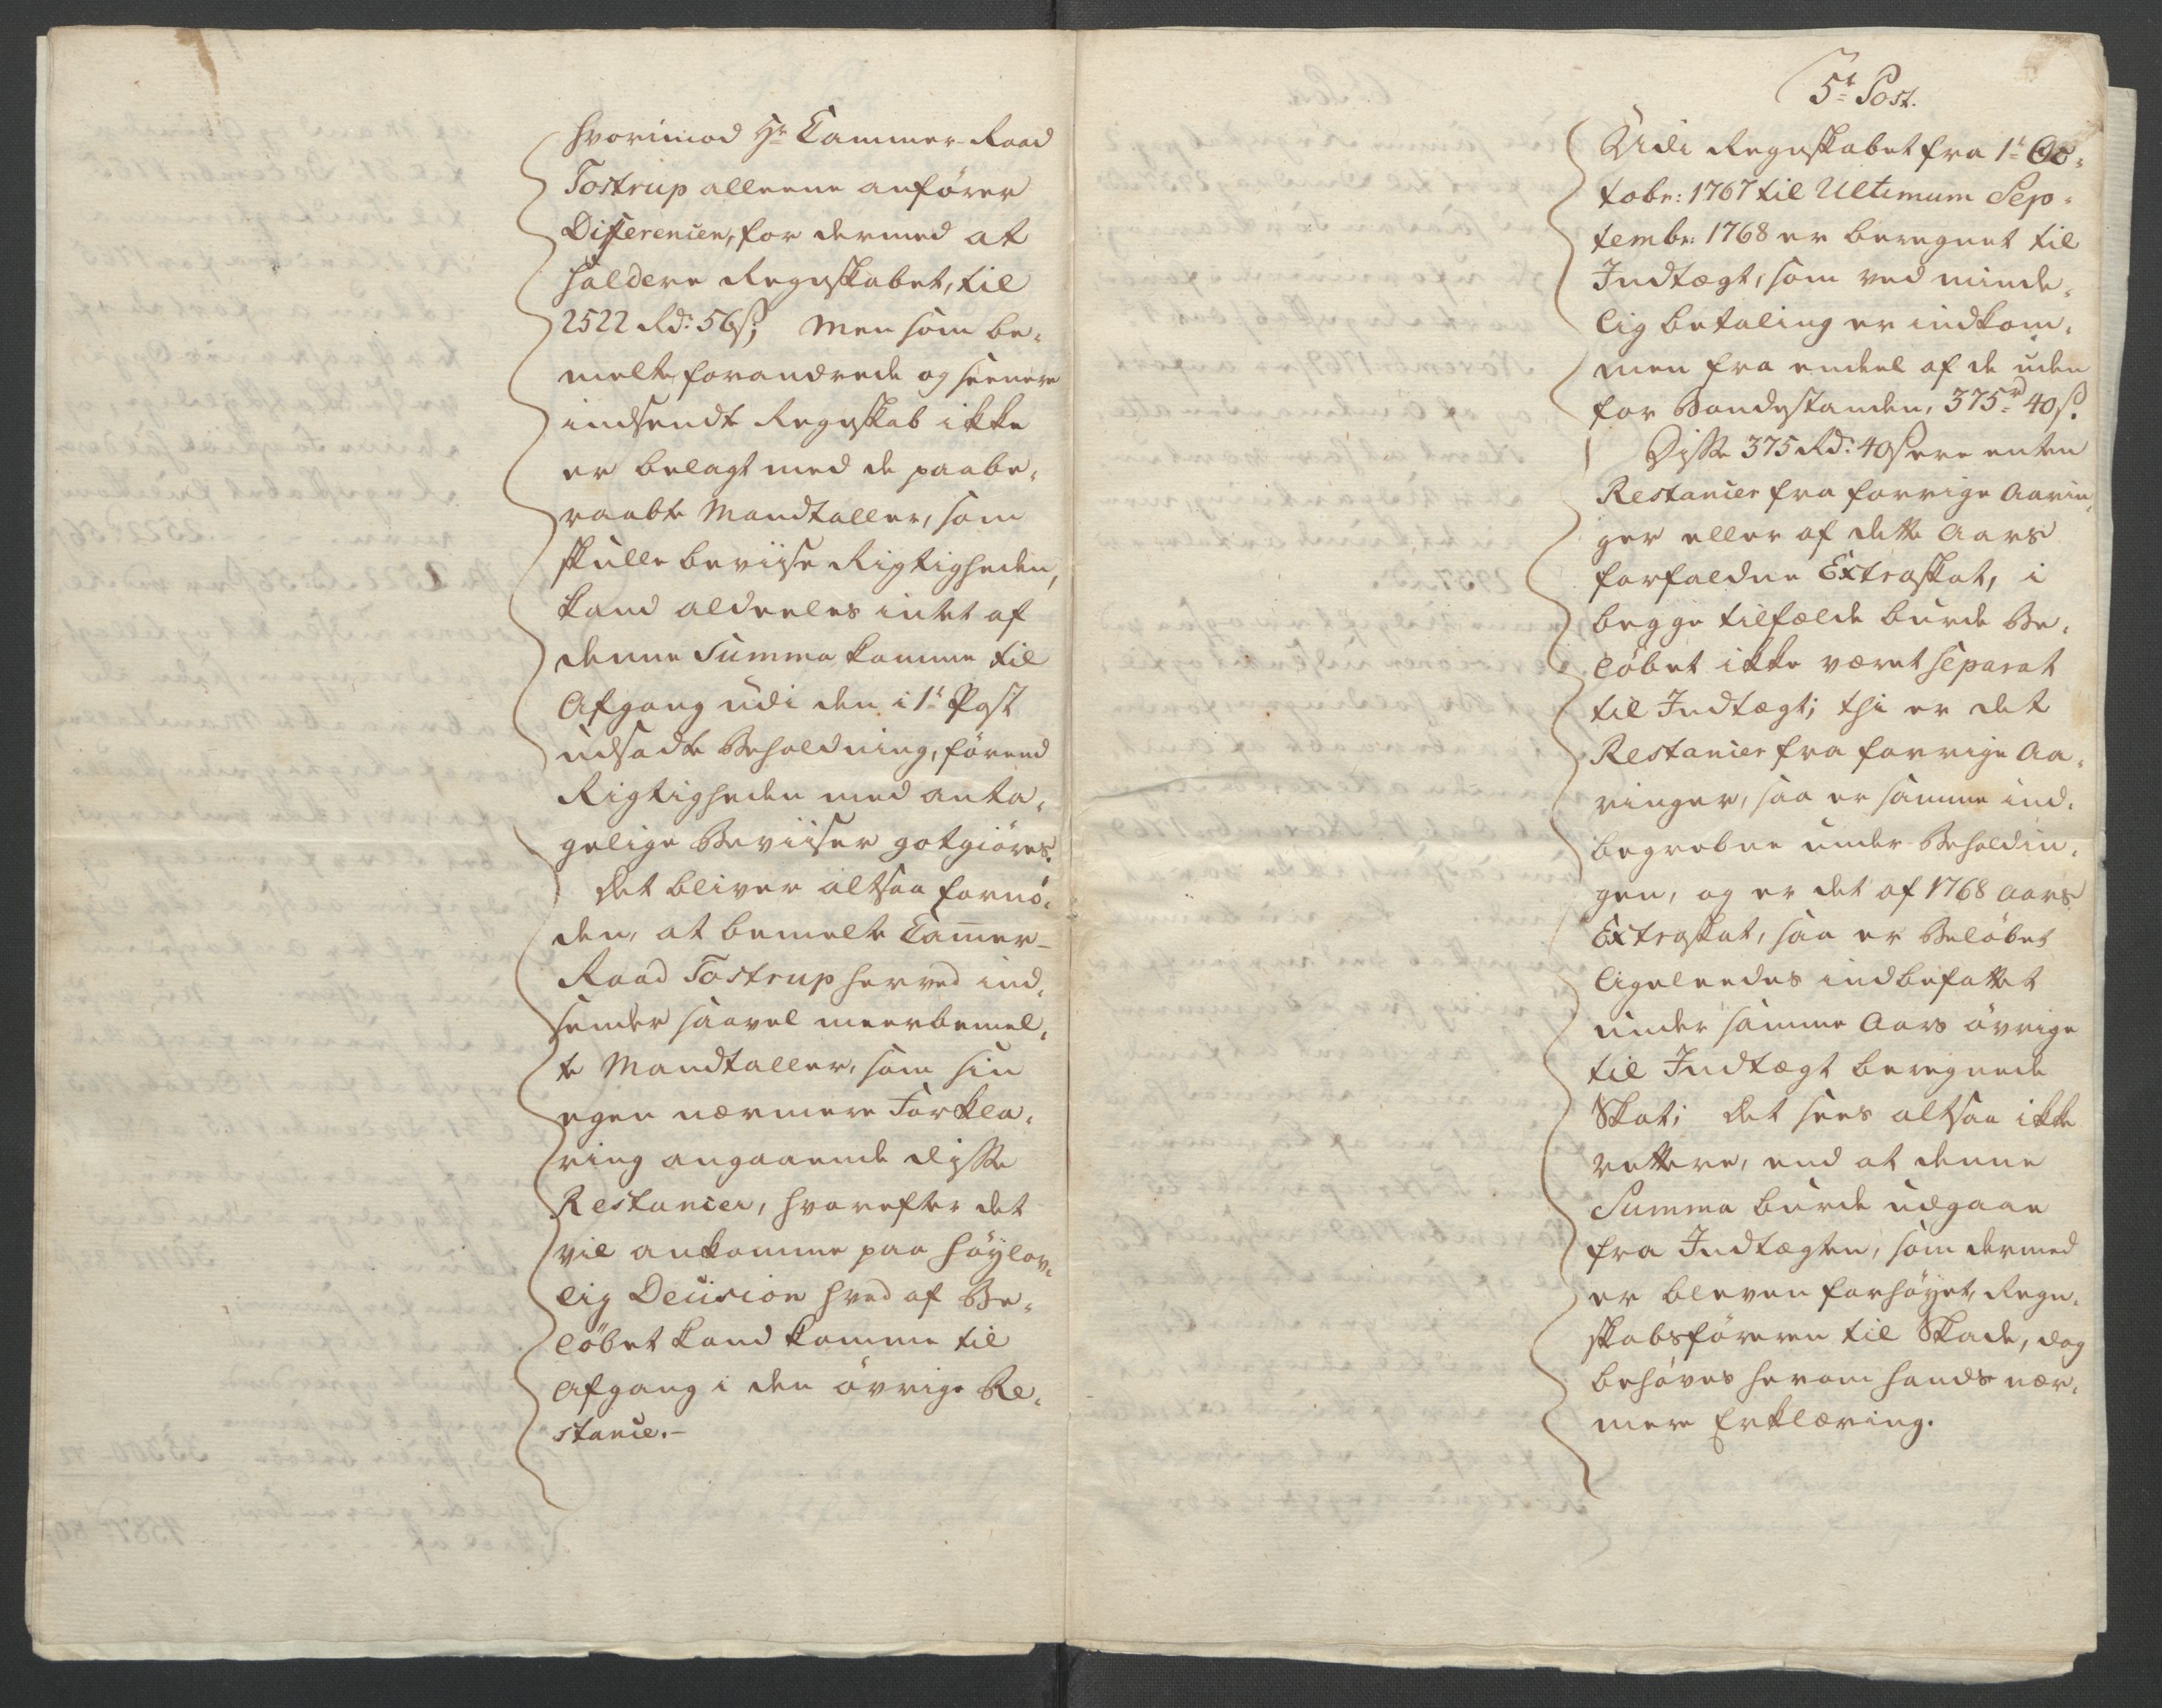 hvorimod Hr Cammer-Raad
Tostrup alleene anfører
Differencen, for dermed at
saldere Regnskabet, til
2522 Rd: 56 s; Men som be-
melte forandrede og seenere
indsendte Regnskab ikke
er belagt med de paabe-
raabte Mandtaller, som
skulle beviise Rigtigheden,
kand aldeeles intet af
denne Summa komme til
Afgang udi den i 1te Post
udsadte Beholdning, förend
Rigtigheden med anta-
gelige Beviiser gotgiöres.
Det bliver altsaa fornö-
den, at bemelte Cammer-
Raad Tostrup herved ind-
sender saavel meerbemel-
te Mandtaller, som sin
egen nærmere Forkla-
ring angaaende disse
Restancer, hvorefter det
vil ankomme paa höylov-
lig Decision hvad af Be-
löbet kand komme til
Afgang i den övrige Re-
stance.-
5te Post.
Udi Regnskabet fra 1te Oc-
tobr: 1767 til Ultimum Sep-
tembr: 1768 er beregnet til
Indtægt, som ved minde-
lig betaling er indkom-
men fra endeel af de uden
for Bondestanden, 375 rd 40 s.
Disse 375 Rd: 40 s ere enten
Restancer fra forrige Aarin-
ger eller af dette Aars
forfaldne Extraskat, i
begge tilfælde burde Be-
löbet ikke været separat
til Indtægt; thi er det
Restancer fra forrige Aa-
ringer, saa er samme ind-
begrebne under Beholdin-
gen, og er det af 1768 Aars
Extraskat, saa er Belöbet
ligeleedes indbefattet
under samme Aars övrige
til Indtægt beregnede
Skat; det sees altsaa ikke
rettere, end at denne
Summa burde udgaae
fra Indtægten, som dermed
er bleven forhöyet, Regn-
skabsföreren til Skade, dog
behöves herom hands nær-
mere Erklæring.